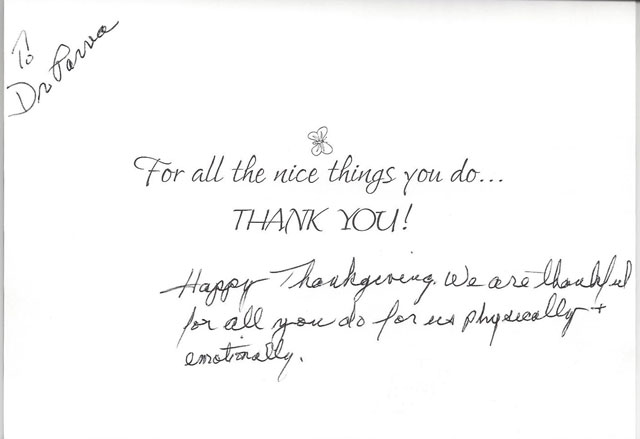 To!
Dr. Parva
For all the nice things you do...
THANK YOU!
Happy Thankgiving. We are thankful
for all you do for us physically +
emotionally.